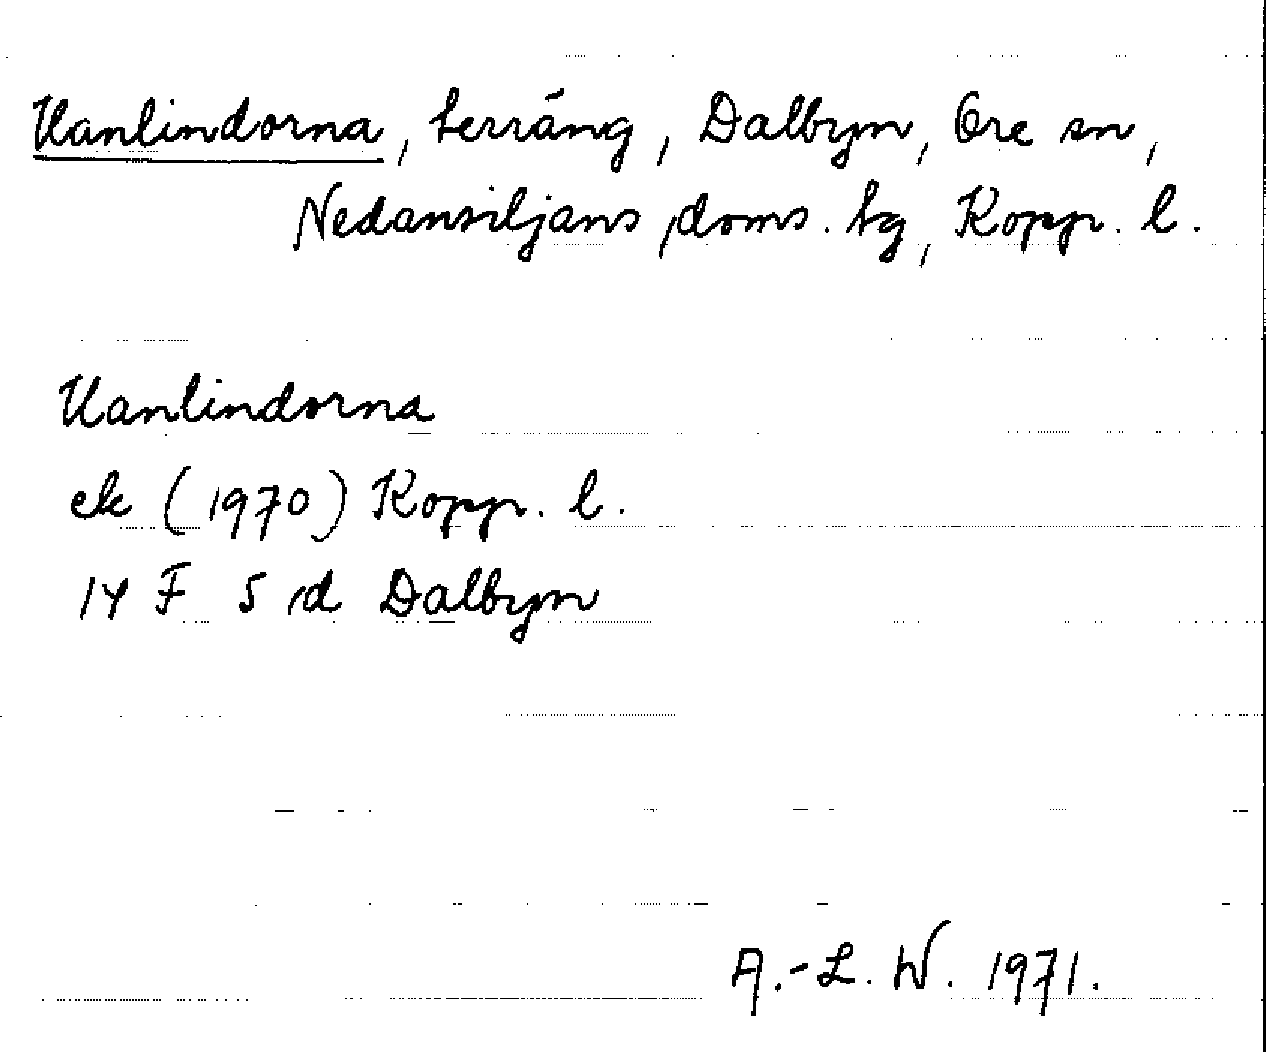 Vanlindorna, terräng, Dalbyn, Ore sn,
Nedansiljans doms. tg, Kopp. l.
Vanlindorna
ek (1970) Kopp. l.
14 F 5 d Dalbyn
A.-L. W. 1971.